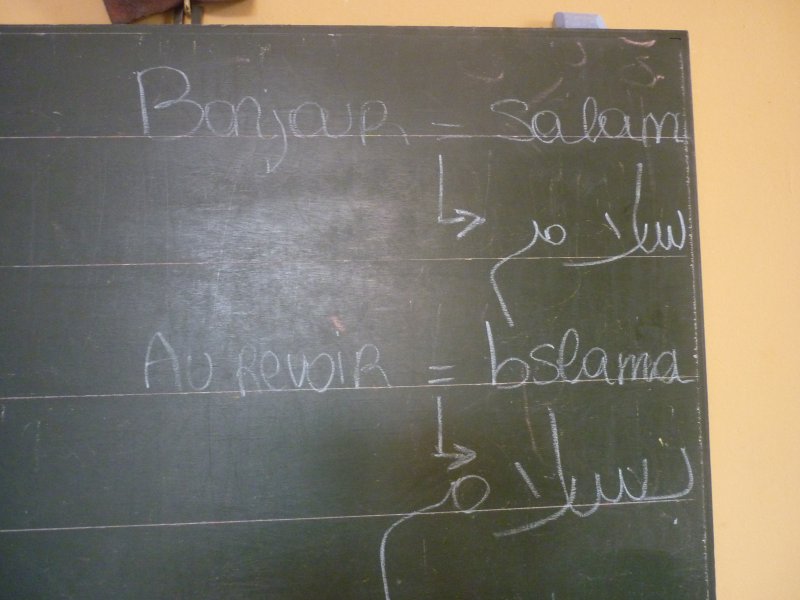 Bonjour = Salam
سلام
Au Revoir = bslama
بسلام